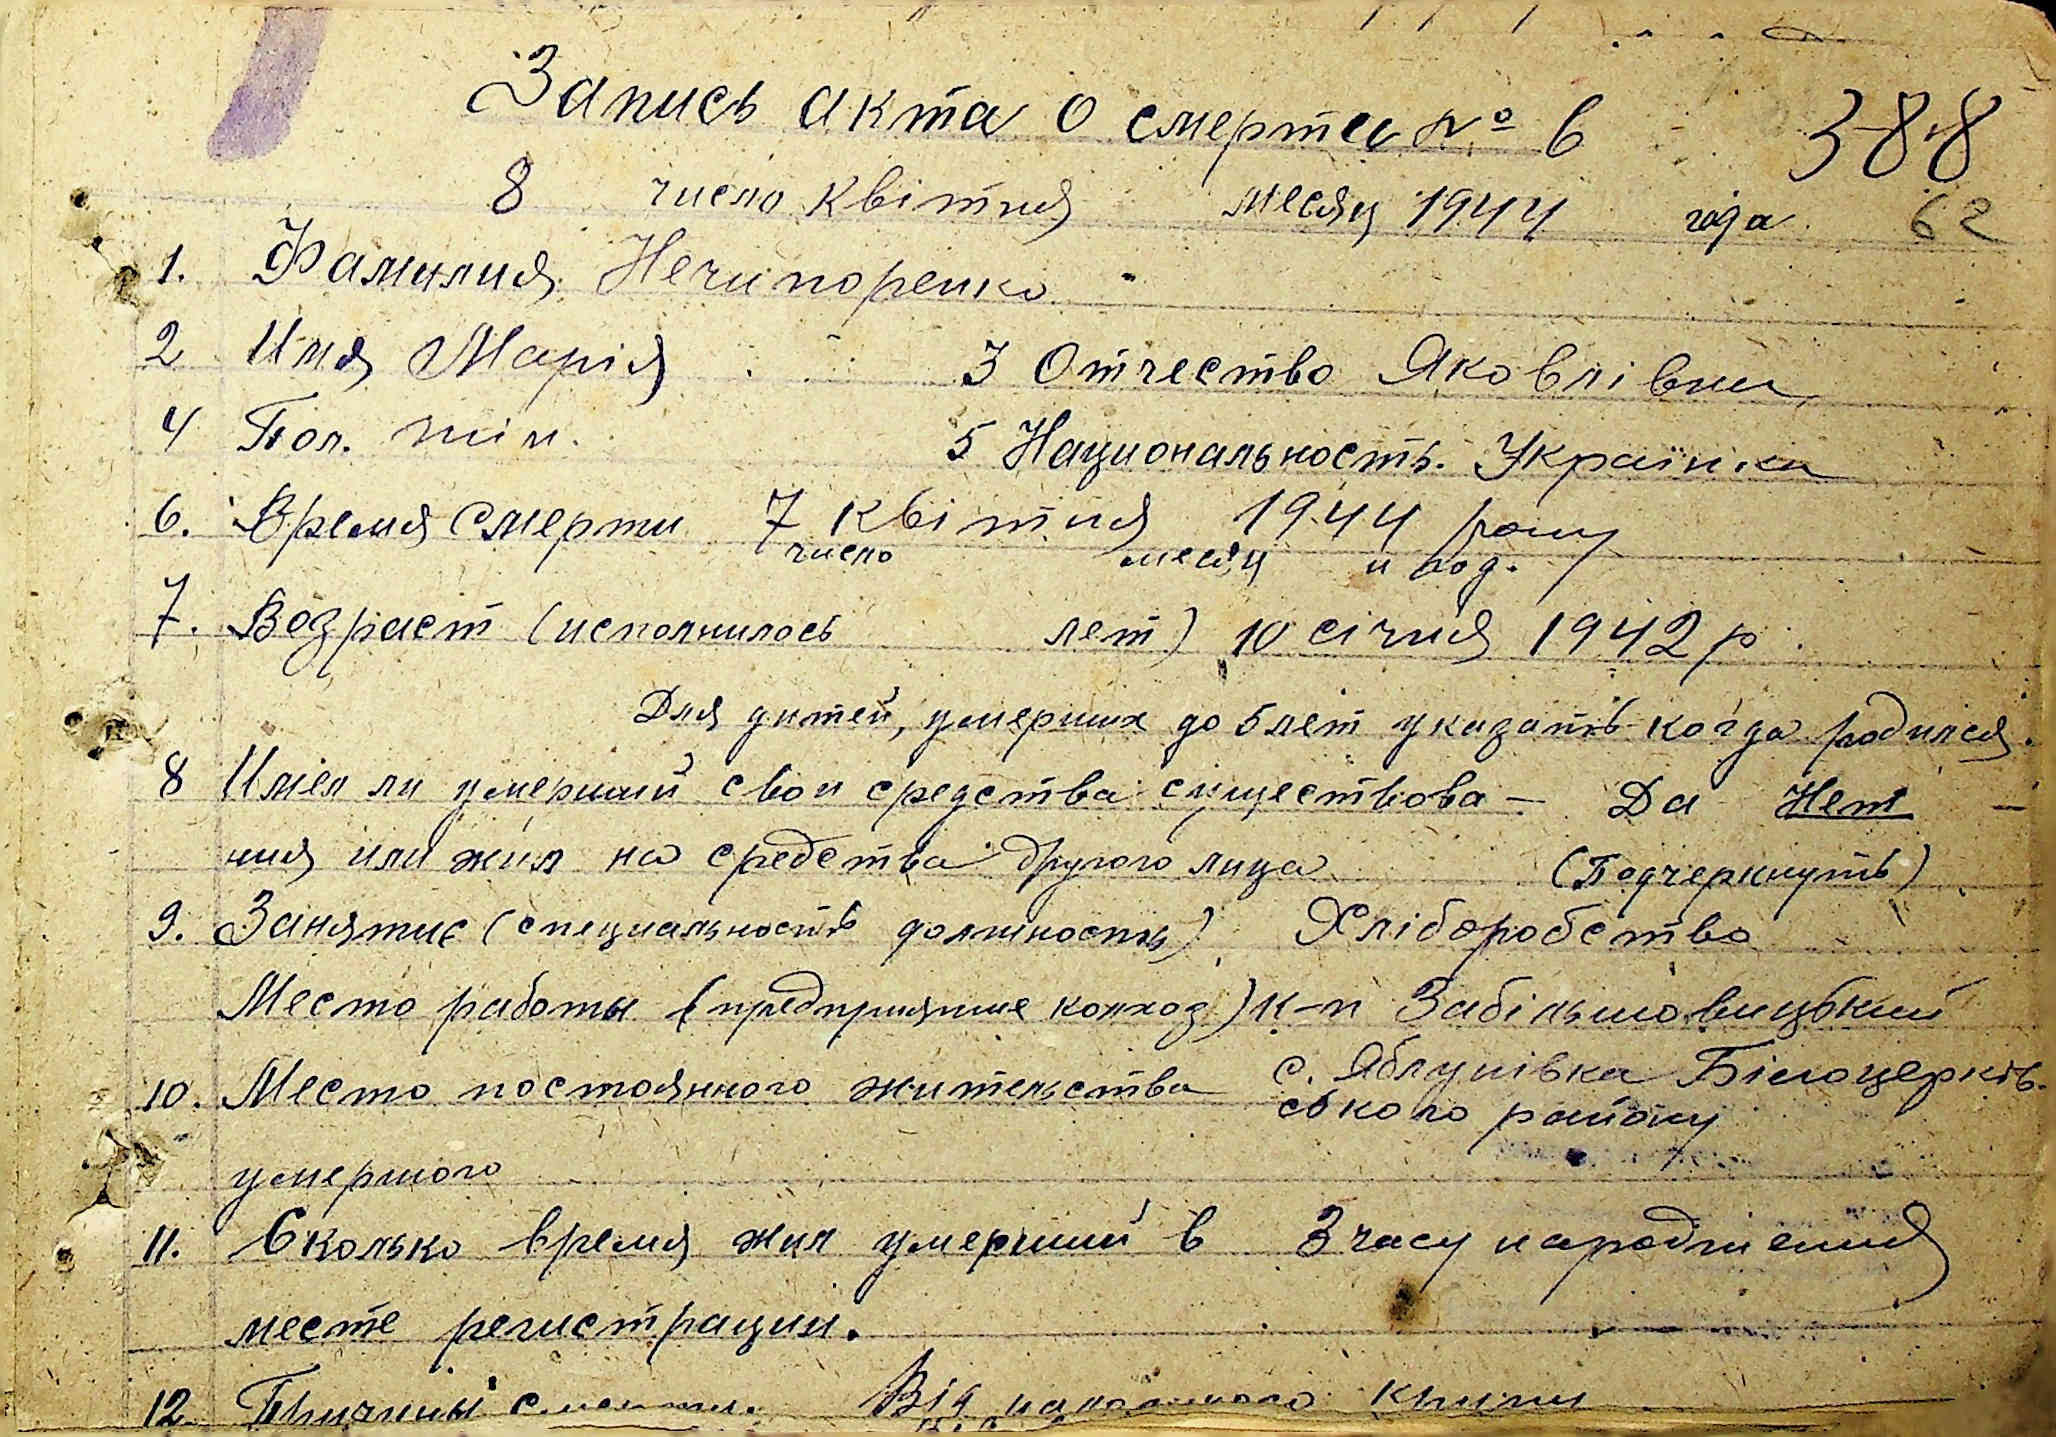 Запись акта о смерти № 6
388
8 число Квітня месяц 1944 года
62
1. Фамилия Нечипоренко
2 Имя Марія 3 Отчество Яковлівна
4 Пол. жін. 5 Национальность. Українка
6. Время смерти 7 квітня 1944 року
число месяц и год.
7. Возраст (исполнилось лет) 10 січня 1942 р.
Для дитей, умерших до 5 лет указать когда родился.
8 Имел ли умерший свои средства существова- Да Нет
ния или жил на средства другого лица (Подчеркнуть)
9. Занятие (специальность должность) Хліборобство
Место работы (предприятие колхоз) к-п
10. Место постоянного жительства с. Яблунівка Білоцерків-
ського району
умершого
11. Сколько время жил умерший в З часу народження
месте регистрации.
12. Причины смерти. Від